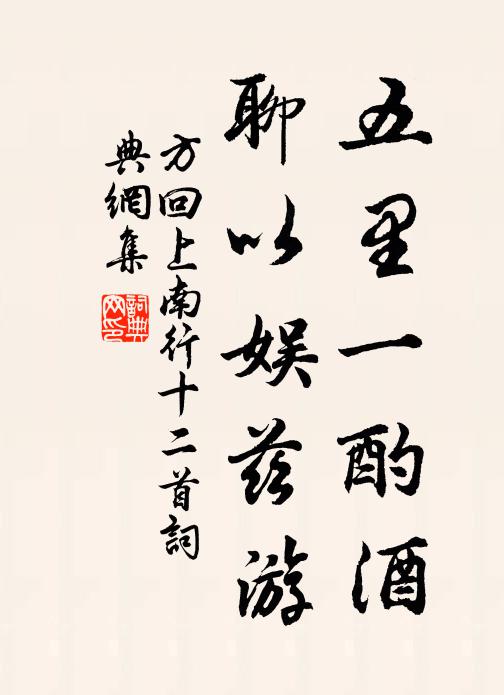 五里一酌酒
聊以娱茲游
方回上南行十二首詞
典網集
詞典網印